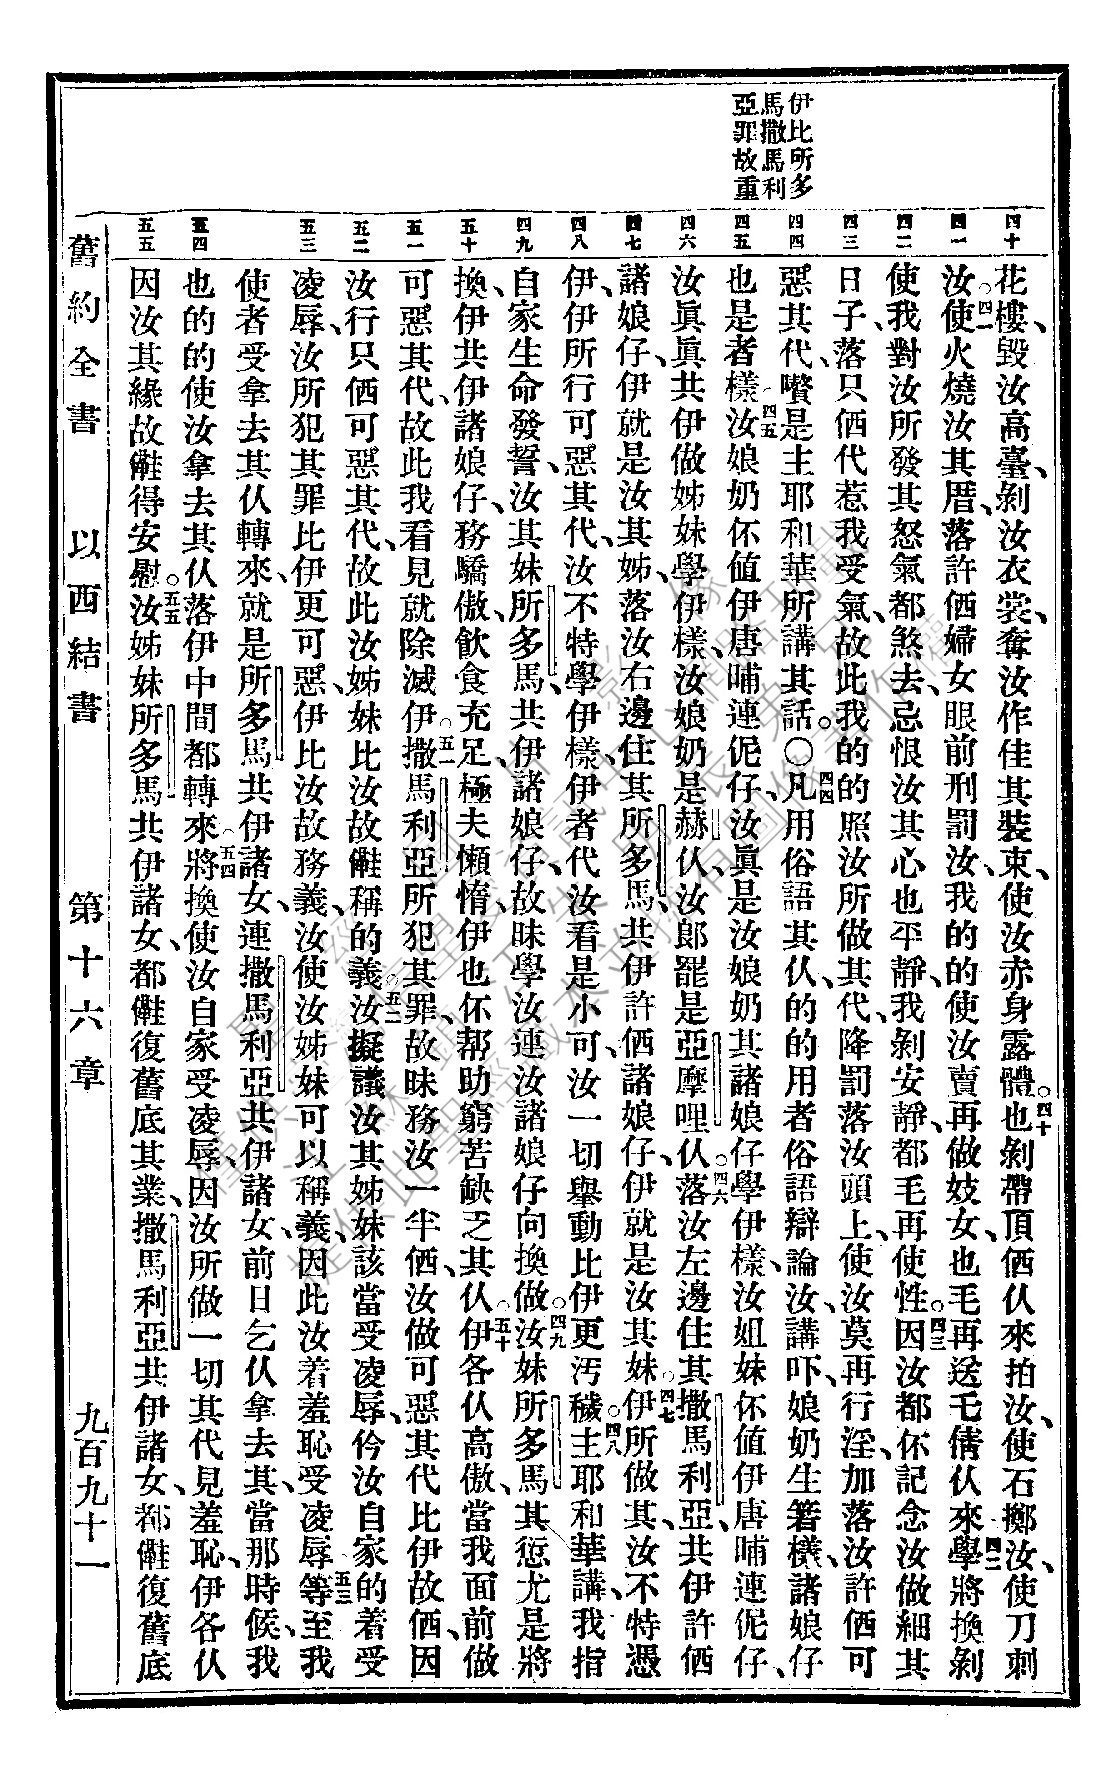 伊比所多
馬撒馬利
亞罪故重
四十
四一
四二
四三
四四
四五
四六
四七
四八
四九
五十
五一
五二
五三
五四
五五
花樓、毀汝高臺、剝汝衣裳、奪汝作佳其裝束、使汝赤身露體。○四十也剝帶頂㑚伙來拍汝、使石擲汝、使刀刺
汝。○四一使火燒汝其厝、落許㑚婦女眼前刑罰汝、我的的使汝賣再做妓女、也毛再送乇倩伙來學。四二將換剝
使我對汝所發其怒氣都煞去、忌恨汝其心也平靜、我剝安靜、都毛再使性。○四三因汝都伓記念汝做細其
日子、落只㑚代惹我受氣、故此我的的照汝所做其代、降罰落汝頭上、使汝莫再行淫、加落汝許㑚可
惡其代、嚽是主耶和華所講其話。○四四凡用俗語其伙、的的用者俗語辯論汝、講吓、娘奶生箬樣、諸娘仔
也是者樣。四五汝娘奶伓値伊唐哺連伲仔、汝眞是汝娘奶其諸娘仔、學伊樣、汝姐妹伓値伊唐哺連伲仔、
汝眞眞共伊做姊妹、學伊樣、汝娘奶是赫伙、汝郞罷是亞摩哩伙。○四六落汝左邊住其撒馬利亞、共伊許㑚
諸娘仔、伊就是汝其姊、落汝右邊住其所多馬、共伊許㑚諸娘仔、伊就是汝其妹。○四七伊所做其、汝不特憑
伊、伊所行可惡其代、汝不特學伊樣、伊者代汝看是小可、汝一切舉動比伊更汚穢。○四八主耶和華講、我指
自家生命發誓、汝其妹所多馬、共伊諸娘仔、故昧學汝連汝諸娘仔向換做。○四九汝妹所多馬其愆尤是將
換、伊共伊諸娘仔、務驕傲、飮食充足、極夫懶惰、伊也伓帮助窮苦缺乏其伙。○五十伊各伙高傲、當我面前做
可惡其代、故此我看見就除滅伊。○五一撒馬利亞所犯其罪、故昧務汝一半㑚、汝做可惡其代、比伊故㑚、因
汝行只㑚可惡其代、故此汝姊妹比汝故𣍐稱的義。○五二汝擬議汝其姊妹該當受凌辱、伱汝自家的着受
凌辱、汝所犯其罪比伊更可惡、伊比汝故務義、汝使汝姊妹可以稱義、因此汝着羞恥受凌辱等至。五三我
使者受拿去其伙轉來、就是所多馬共伊諸女、連撒馬利亞共伊諸女、前日乞伙拿去其、當那時候、我
也的的使汝拿去其伙落伊中間都轉來。○五四將換使汝自家受凌辱、因汝所做一切其代見羞恥、伊各伙
因汝其緣故𣍐得安慰。○五五汝姊妹所多馬共伊諸女、都𣍐復舊底其業、撒馬利亞共伊諸女、都𣍐復舊底
舊約全書 以西結書 第十六章 九百九十一